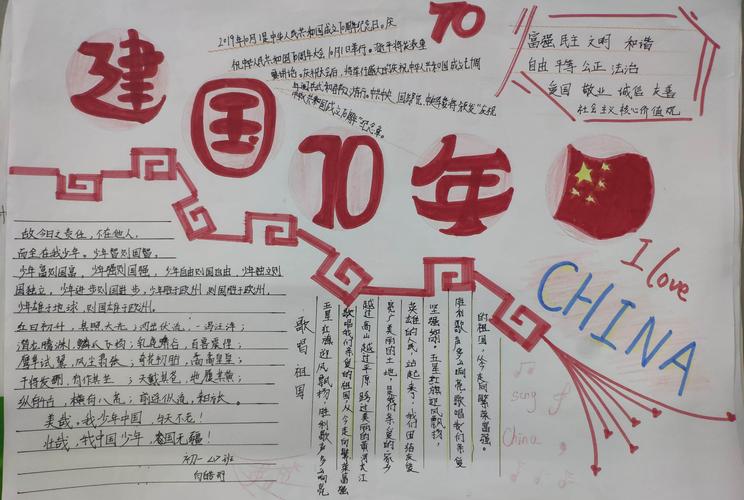 建国70年
70
2019年10月1是中华人民共和国成立70周年纪念日。庆
祝中华人民共和国70周年大会10月1日举行。
富强 民主 文明 和谐
自由 平等 公正 法治
爱国 敬业 诚信 友善
社会主义核心价值观
I love
CHINA
故今日之责任，不在他人，
而全在我少年。少年智则国智，
少年富则国富，少年强则国强，少年自由则国自由，少年独立则
国独立，少年进步则国进步，少年胜于欧洲则国胜于欧洲，
少年雄于地球，则国雄于地球。
红日初升，其道大光；河出伏流，一泻汪洋；
潜龙腾渊，鳞爪飞扬；乳虎啸谷，百兽震惶；
鹰隼试翼，风尘翕张；奇花初胎，矞矞皇皇；
干将发硎，有作其芒；天戴其苍，地履其黄；
纵有千古，横有八荒；前途似海，来日方长。
美哉，我少年中国，与天不老！
壮哉，我中国少年，与国无疆！
歌唱祖国
五星红旗迎风飘扬，胜利歌声多么响亮
歌唱我们亲爱的祖国，从今走向繁荣富强
越过高山 越过平原 跨过奔腾的黄河长江
宽广美丽的土地，是我们亲爱的家乡
英雄的人民 站起来了，我们团结友爱
坚强如钢，五星红旗迎风飘扬，
胜利歌声多么响亮，歌唱我们亲爱
的祖国，从今走向繁荣富强。
song
China